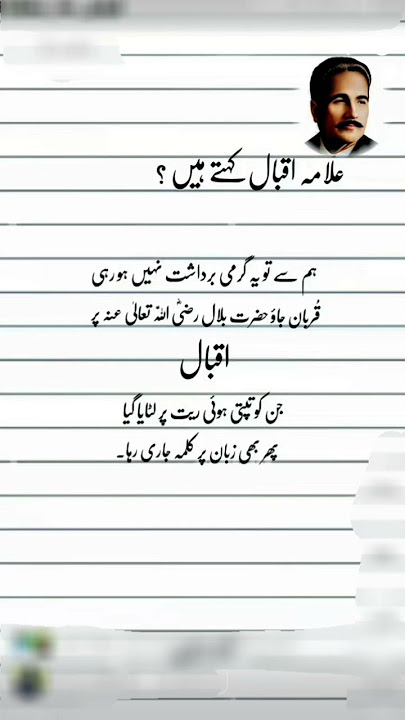 علامہ اقبال کہتے ہیں ؟
ہم سے تو یہ گرمی برداشت نہیں ہو رہی
قُربان جاؤ حضرت بلال رضیؓ اللہ تعالیٰ عنہ پر
اقبال
جن کو تپتی ہوئی ریت پر لٹایا گیا
پھر بھی زبان پر کلمہ جاری رہا۔